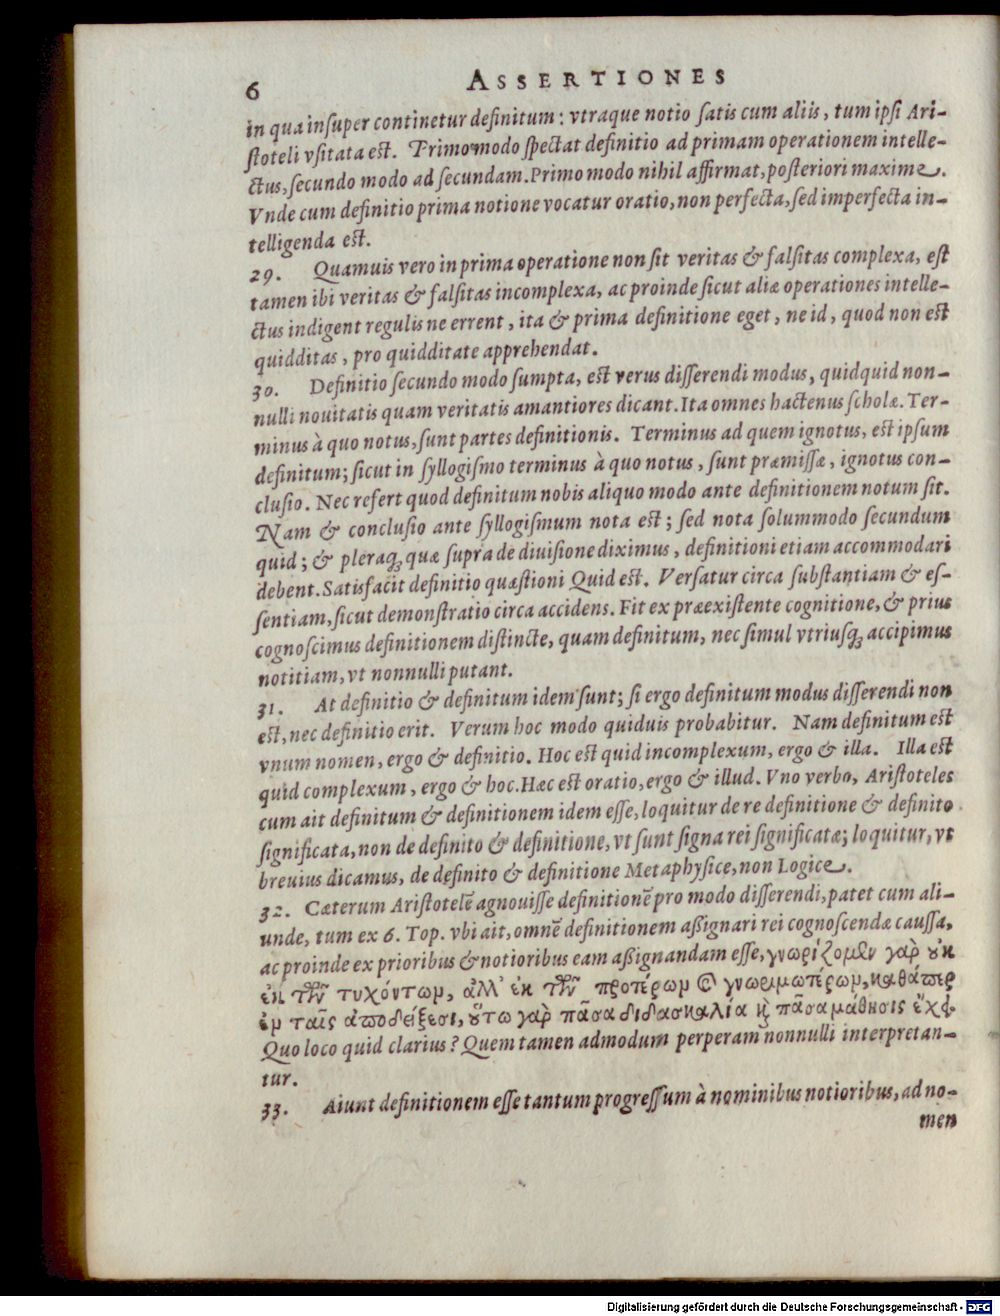 6 ASSERTIONES
in qua inſuper continetur definitum: vtraque notio ſatis cum aliis, tum ipſi Ari-
ſtoteli vſitata eſt. Primo modo ſpectat definitio ad primam operationem intelle-
ctus, ſecundo modo ad ſecundam. Primo modo nihil affirmat, poſteriori maxime.
Vnde cum definitio prima notione vocatur oratio, non perfecta, ſed imperfecta in-
telligenda eſt.
29. Quamuis vero in prima operatione non ſit veritas & falſitas complexa, eſt
tamen ibi veritas & falſitas incomplexa, ac proinde ſicut aliæ operationes intelle-
ctus indigent regulis ne errent, ita & prima definitione eget, ne id, quod non eſt
quidditas, pro quidditate apprehendat.
30. Definitio ſecundo modo ſumpta, eſt verus diſſerendi modus, quidquid non-
nulli nouitatis quam veritatis amantiores dicant. Ita omnes hactenus ſcholæ. Ter-
minus à quo notus, ſunt partes definitionis. Terminus ad quem ignotus, eſt ipſum
definitum; ſicut in ſyllogiſmo terminus à quo notus, ſunt præmiſſæ, ignotus con-
cluſio. Nec refert quod definitum nobis aliquo modo ante definitionem notum ſit.
Nam & concluſio ante ſyllogiſmum nota eſt; ſed nota ſolummodo ſecundum
quid; & pleraq; quæ ſupra de diuiſione diximus, definitioni etiam accommodari
debent. Satisfacit definitio quæſtioni Quid eſt. Verſatur circa ſubſtantiam & eſ-
ſentiam, ſicut demonſtratio circa accidens. Fit ex præexiſtente cognitione, & prius
cognoſcimus definitionem diſtincte, quam definitum, nec ſimul vtriuſq; accipimus
notitiam, vt nonnulli putant.
31. At definitio & definitum idem ſunt; ſi ergo definitum modus diſſerendi non
eſt, nec definitio erit. Verum hoc modo quiduis probabitur. Nam definitum eſt
vnum nomen, ergo & definitio. Hoc eſt quid incomplexum, ergo & illa. Illa eſt
quid complexum, ergo & hoc. Hæc eſt oratio, ergo & illud. Vno verbo, Ariſtoteles
cum ait definitum & definitionem idem eſſe, loquitur de re definitione & definito
ſignificata, non de definito & definitione, vt ſunt ſigna rei ſignificatæ; loquitur, vt
breuius dicamus, de definito & definitione Metaphyſice, non Logice.
32. Cæterum Ariſtotelē agnouiſſe definitionē pro modo diſſerendi, patet cum ali-
unde, tum ex 6. Top. vbi ait, omnē definitionem aßignari rei cognoſcendæ cauſſa,
ac proinde ex prioribus & notioribus eam aßignandam eſſe, γνωρίζομεν γαρ ουκ
εκ των τυχόντων, αλλ' εκ των προτέρων και γνωριμωτέρων, καθάπερ
εν ταις αποδείξεσι, ούτω γαρ πᾶσα διδασκαλία και πᾶσα μάθησις έχει.
Quo loco quid clarius? Quem tamen admodum perperam nonnulli interpretan-
tur.
33. Aiunt definitionem eſſe tantum progreſſum à nominibus notioribus, ad no-
men
Digitalisierung gefördert durch die Deutsche Forschungsgemeinschaft - DFG